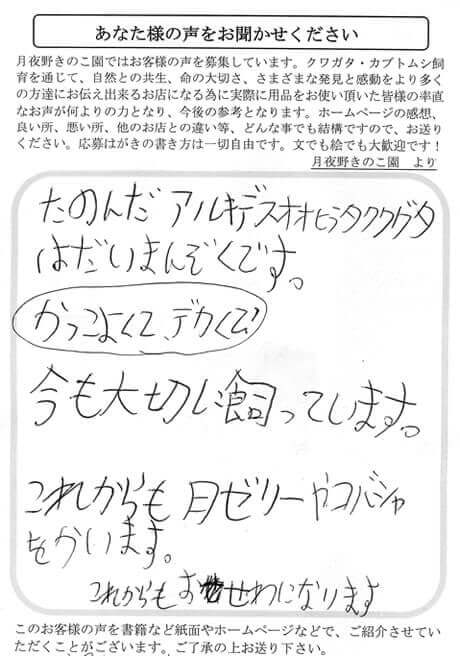 あなた様の声をお聞かせください
月夜野きのこ園ではお客様の声を募集しています。クワガタ・カブトムシ飼
育を通じて、自然との共生、命の大切さ、さまざまな発見と感動をより多く
の方達にお伝え出来るお店になる為に実際に用品をお使い頂いた皆様の率直
なお声が何よりの力となり、今後の参考となります。ホームページの感想、
良い所、悪い所、他のお店との違い等、どんな事でも結構ですので、お送り
ください。応募はがきの書き方は一切自由です。文でも絵でも大歓迎です！
月夜野きのこ園　より
たのんだ アルキデスオオヒラタククグタ
はだいまんぞくです。
かっこよくて、デカくて!
今も大切に飼っています。
これからも 月ゼリーやコバシャ
をかいます。
これからも おせわになります
このお客様の声を書籍など紙面やホームページなどで、ご紹介させてい
ただくことがございます。ご了承の上お送り下さい。